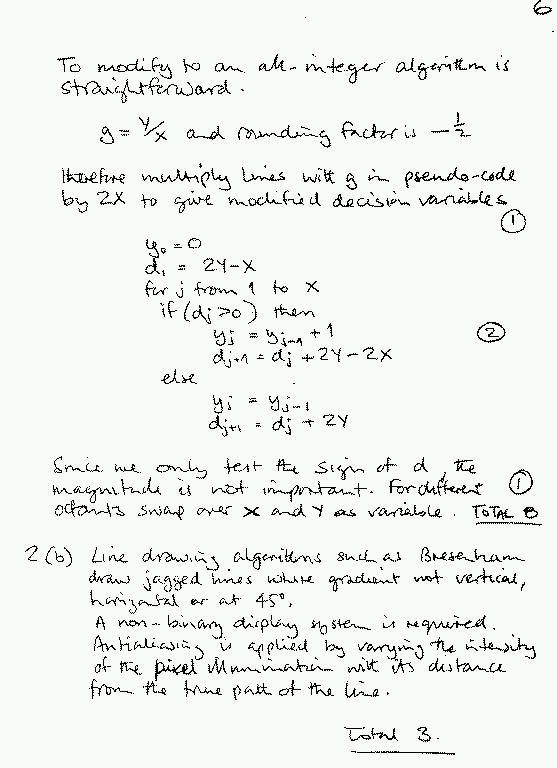 6
To modify to an all-integer algorithm is
straightforward.
g = Y/X and rounding factor is -1/2
therefore multiply lines with g in pseudo-code
by 2X to give modified decision variables
①
y₀ = 0
d₁ = 2Y-X
for j from 1 to X
if (dj >0) then
yj = yj-1 + 1 ②
dj+1 = dj + 2Y - 2X
else
yj = yj-1
dj+1 = dj + 2Y
Since we only test the sign of d, the
magnitude is not important. For different ①
octants swap over X and Y as variable. TOTAL 8
2(b) Line drawing algorithms such as Bresenham
draw jagged lines where gradient not vertical,
horizontal or at 45°.
A non-binary display system is required.
Antialiasing is applied by varying the intensity
of the pixel illumination with its distance
from the true path of the line.
Total 3.